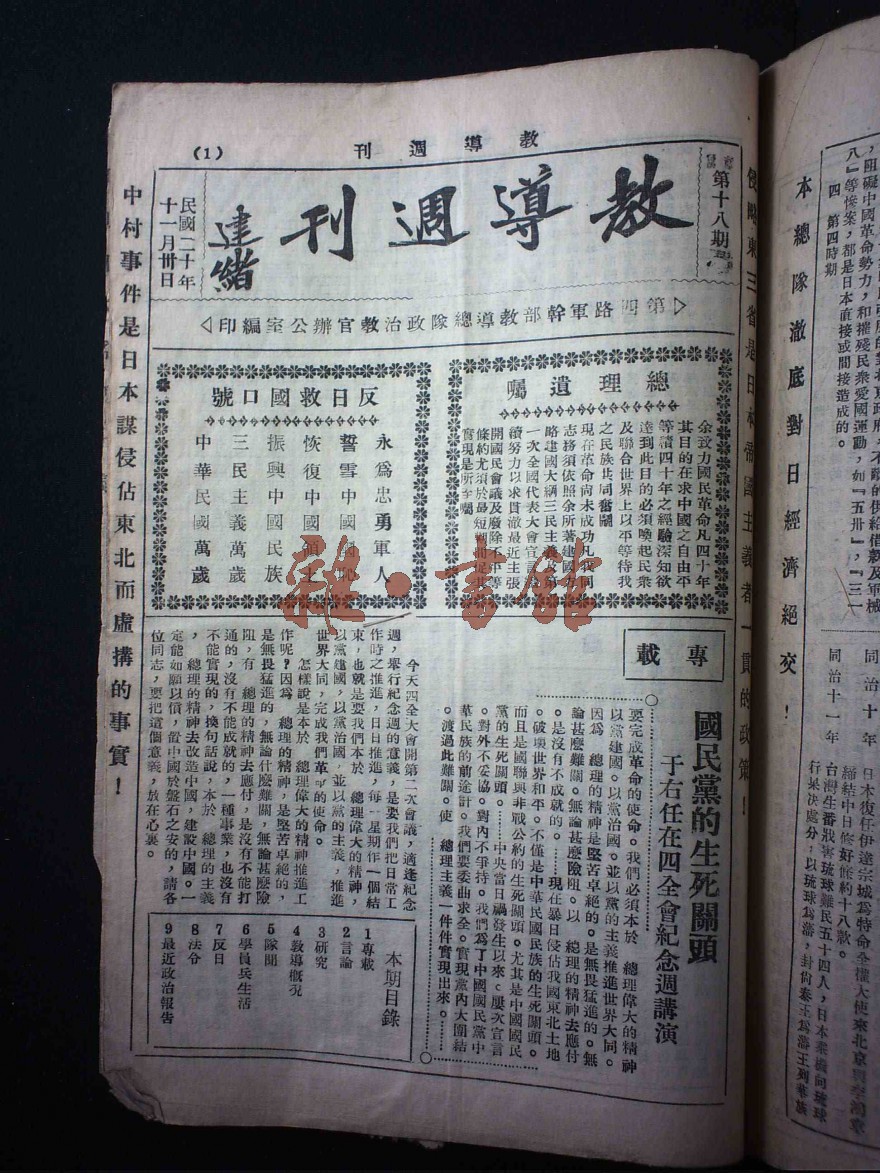 教導週刊
(1)
教導週刊
建緒
第十八期
民國二十年
十一月卅日
▷第四路軍幹部教導總隊政治教官辦公室編印◁
總理遺囑
余致力國民革命凡四十年
其目的在求中國之自由平
等積四十年之經驗深知欲
達到此目的必須喚起民衆
及聯合世界上以平等待我
之民族共同奮鬬
現在革命尚未成功凡我同
志務須依照余所著建國方
略建國大綱三民主義及第
一次全國代表大會宣言繼
續努力以求貫澈最近主張
開國民會議及廢除不平等
條約尤須於最短期間促其
實現是所至囑
反日救國口號
永爲忠勇軍人
誓雪中國國恥
恢復中國領土
振興中國民族
三民主義萬歲
中華民國萬歲
專載
國民黨的生死關頭
于右任在四全會紀念週講演
要完成革命的使命。我們必須本於 總理偉大的精神
以黨建國。以黨治國。並以黨的主義推進世界大同。
因爲 總理的精神是堅苦卓絕的。是無畏猛進的。無
論甚麼難關。無論甚麼險阻。以 總理的精神去應付
。是沒有不成就的。……現在暴日侵佔我國東北土地
。破壞世界和平。不僅是中華民國民族的生死關頭。
而且是國聯與非戰公約的生死關頭。尤其是中國國民
黨的生死關頭。……中央當日禍發生以來。屢次宣言
。對外不妥協。對內不爭持。我們爲了中國國民黨中
華民族的前途計。我們要委曲求全。實現黨內大團結
。渡過此難關。使 總理主義一件件實現出來。
今天四全大會開第二次會議，適逢紀念
週，舉行紀念週的意義，是要我們把日常工
作時之推進，日日推進，每一星期作一個結
束，也就是要我們本於 總理偉大的精神，
以黨建國，以黨治國，並以黨的主義，推進
世界大同，完成我們革命的使命。
怎樣說是本於 總理偉大的精神推進工
作呢？因爲 總理的精神，是堅苦卓絕的，
是無畏猛進的，無論什麼難關，無論甚麼險
阻，有 總理的精神去應付，是沒有不能打
通的，沒有不能成就的，一種事業，也沒有
不能實現的，換句話說，本於 總理的主義
總理的精神去改造中國，建設中國。一
定能如願以償，置中國於盤石之安的，請各
位同志，要把這個意義，放在心裏。
本期目錄
1專載
2言論
3研究
4教導概況
5隊聞
6學員兵生活
7反日
8法令
9最近政治報告
中村事件是日本謀侵佔東北而虛構的事實！
侵略東三省是日本帝國主義者一貫的政策！
，阻礙中國革命勢力，和摧殘民衆愛國運動，如『五卅』，『三一
八』等慘案，都是日本直接或間接造成的。
四 第四時期
本總隊澈底對日經濟絕交！
同治十年
日本復任伊達宗城爲特命全權大使來北京與李鴻章
締結中日修好條約十八款。
同治十一年
台灣生番戕害琉球難民五十四人，日本乘機向琉球
行果決處分，以琉球爲藩，封尚泰王爲藩王列華族